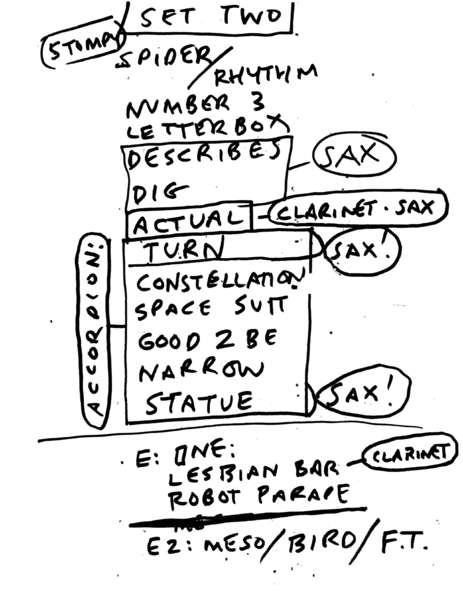 SET TWO
STOMPY
SPIDER/
RHYTHM
NUMBER 3
LETTERBOX
DESCRIBES
SAX
DIG
ACTUAL
CLARINET · SAX
TURN
SAX!
ACCORDION:
CONSTELLATION
SPACE SUIT
GOOD 2 BE
NARROW
STATUE
SAX!
E: ONE:
LESBIAN BAR
CLARINET
ROBOT PARAPE
E2: MESO/BIRD/F.T.